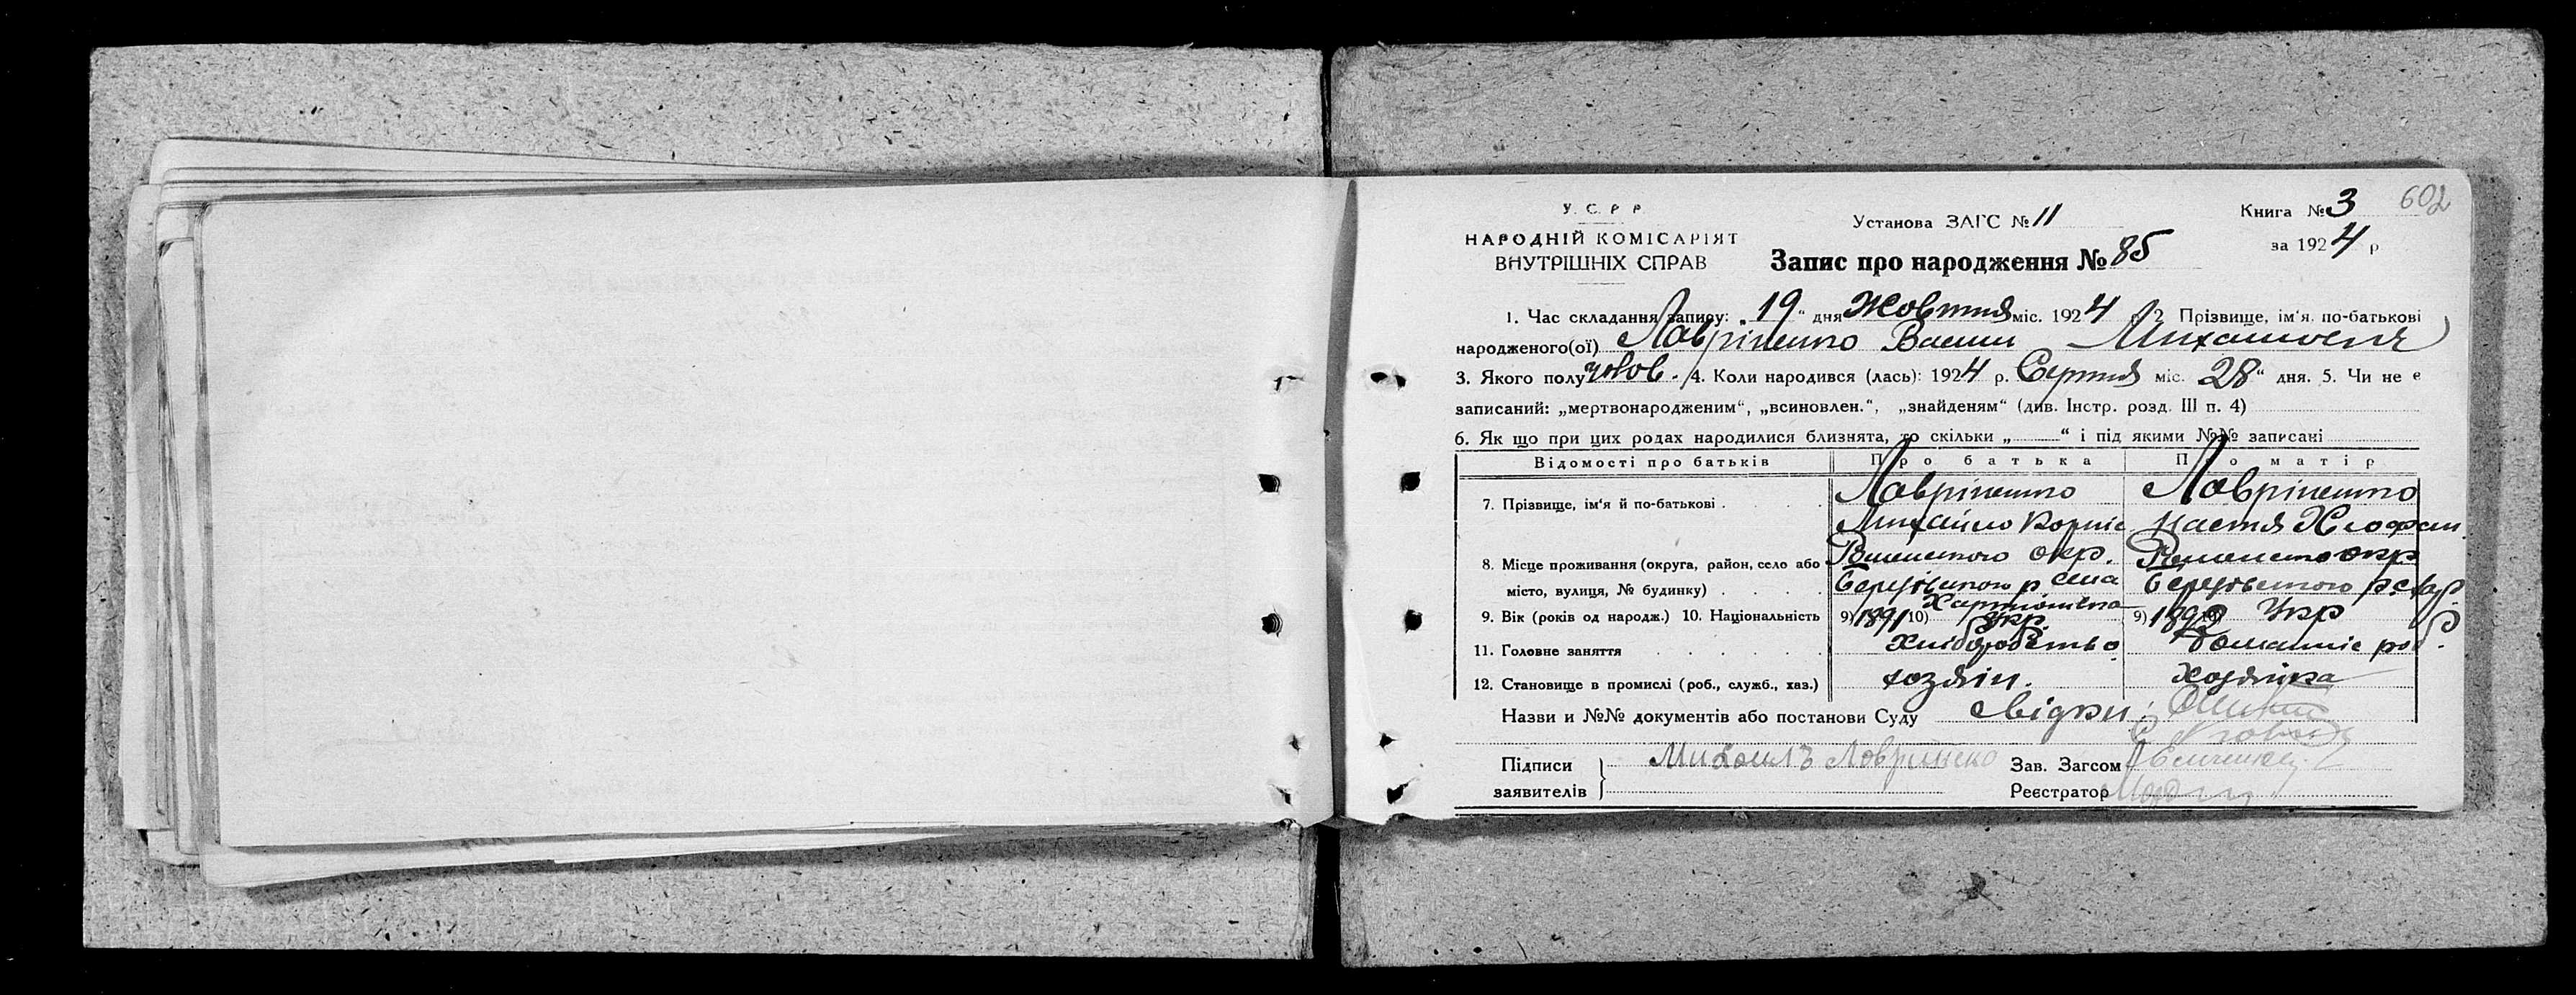 У. С. Р. Р.
НАРОДНІЙ КОМІСАРІЯТ
ВНУТРІШНІХ СПРАВ
Установа ЗАГС № 11
Запис про народження № 85
Книга № 3
602
за 1924 р
1. Час складання запису: „19“ дня Жовтня міс. 1924 р. 2 Прізвище, ім'я, по-батькові
народженого(ої) Лавріненко Василь
3. Якого полу чолов. 4. Коли народився (лась): 1924 р. Серпня міс. 28“ дня. 5. Чи не є
записаний: „мертвонародженим“, „всиновлен.“, „знайденям“ (див. Інстр. розд. III п. 4)
6. Як що при цих родах народилися близнята, то скільки „ “ і під якими №№ записані
Відомості про батьків Про батька Про матір
7. Прізвище, ім'я й по-батькові . Лавріненко Лавріненко
Михайло Корніє Настя
8. Місце проживання (округа, район, село або окр. окр
місто, вулиця, № будинку) р села
9. Вік (років од народж.) 10. Національність 9) 1891 10) Укр 9) Укр
11. Головне заняття Хліборобство Домашнє роб.
12. Становище в промислі (роб., служб., хаз.) хозяін. Хозяйка
Назви и №№ документів або постанови Суду Свідки:
Підписи
заявителів
Михаилъ Лаврінено
Зав. Загсом
Реєстратор